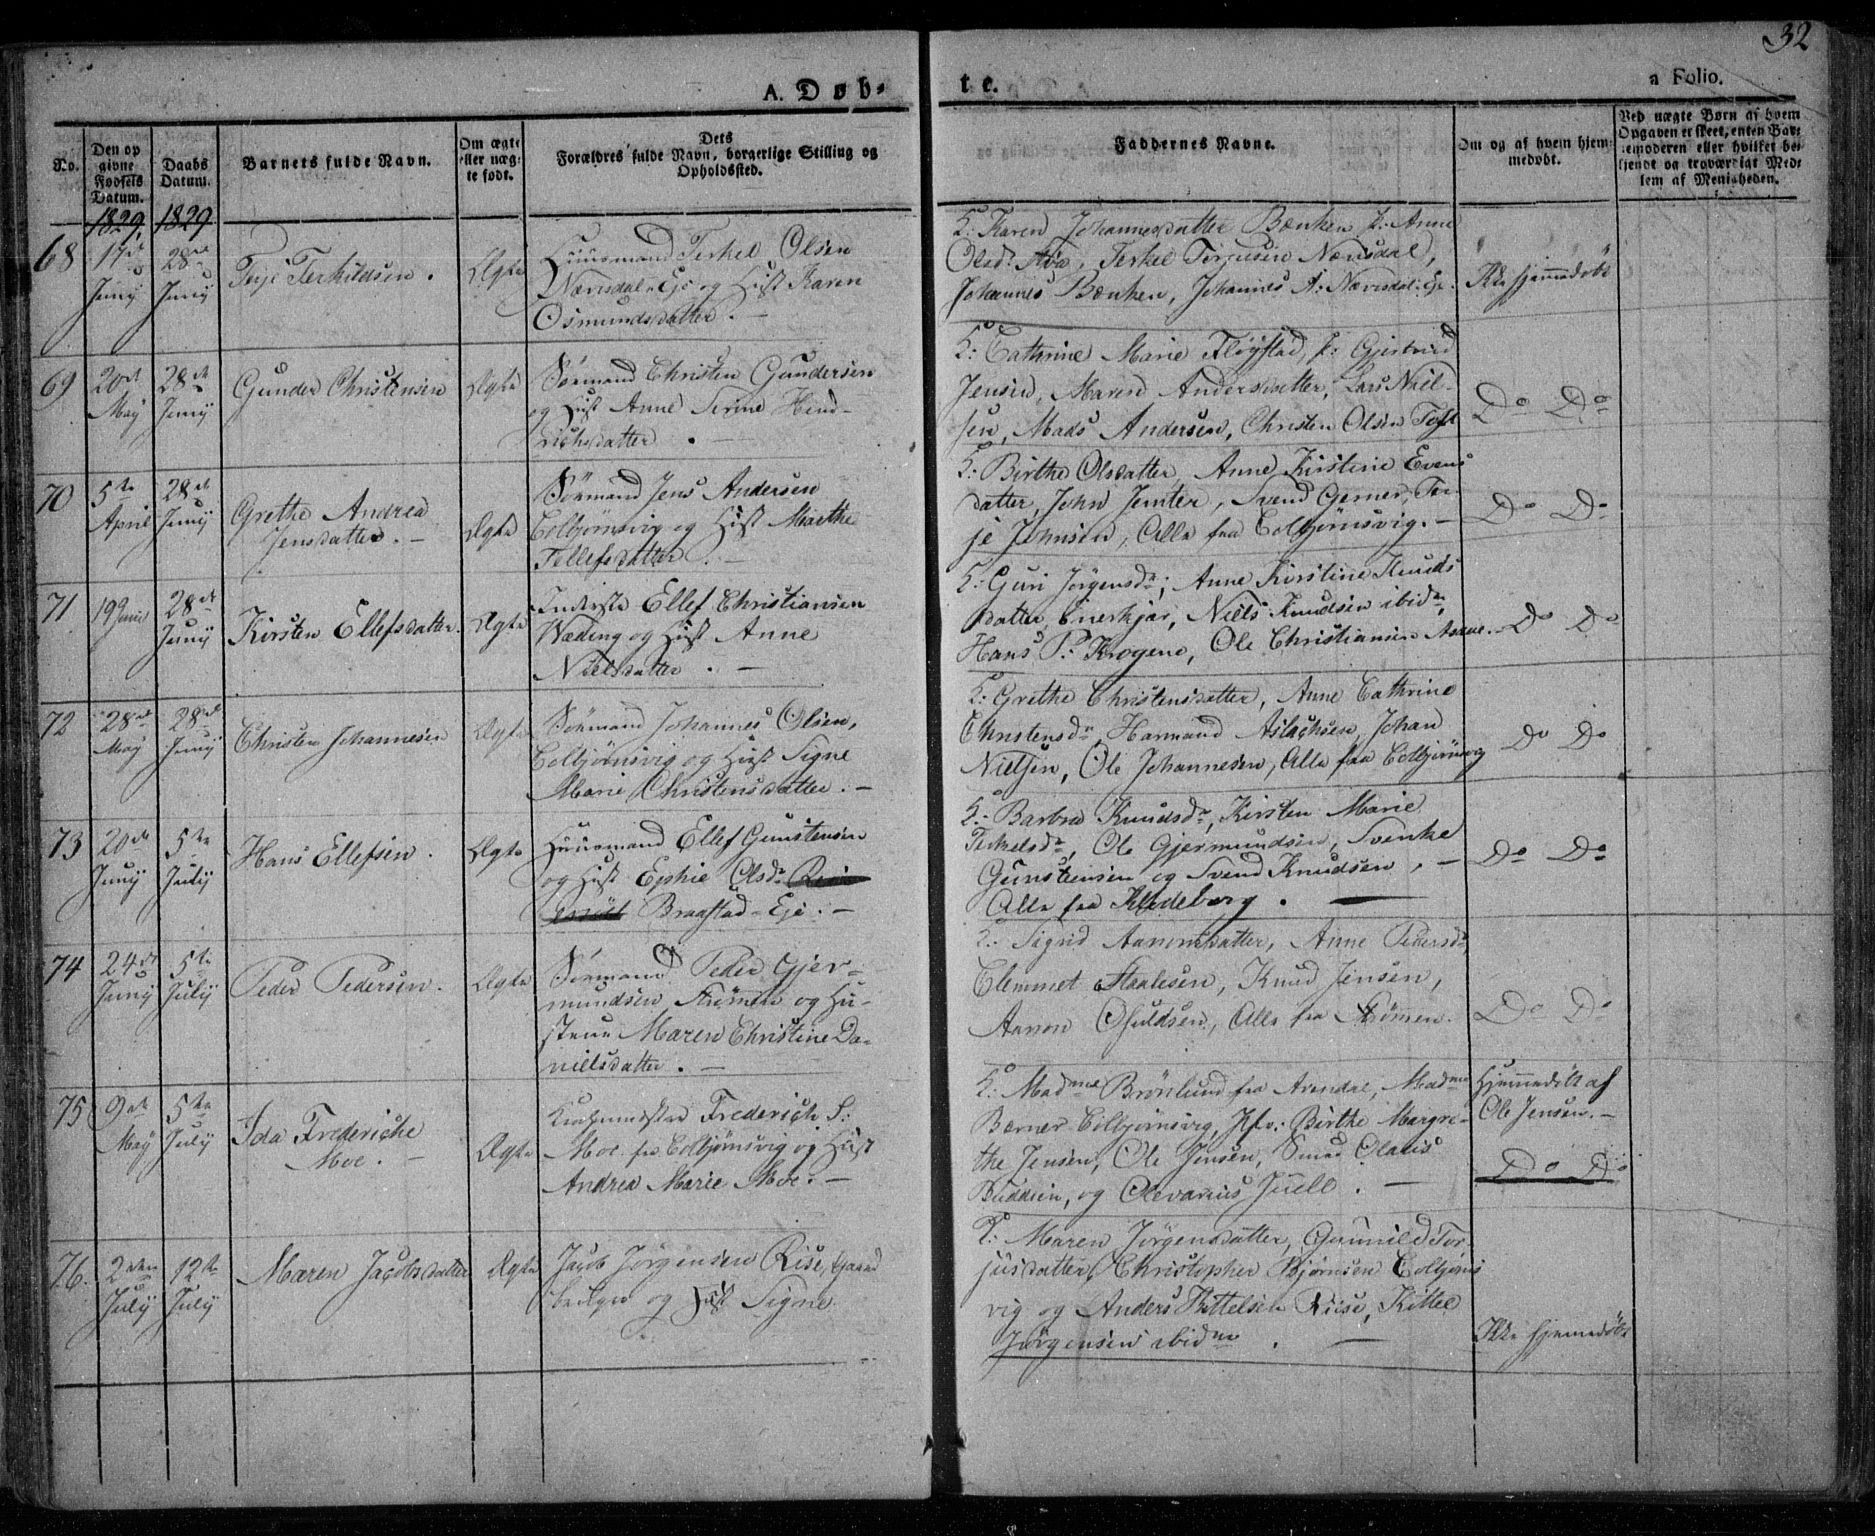 32
A. Døb-
te.
a Folio.
No.
Den op
givne
Fødsels
Datum.
Daabs
Datum.
Barnets fulde Navn.
Om ægte
eller uæg-
te født.
Dets
Forældres fulde Navn, borgerlige Stilling og
Opholdssted.
Faddernes Navne.
Om og af hvem hjem-
medøbt.
Ved uægte Børn af hvem
Opgaven er skeet, enten Bar-
nemoderen eller hvilket be-
kjendt og troværdigt Med-
lem af Menigheden.
1829, 1829
68
17de
Juny
28de
Juny
Terje Terkildsen.
Ægte
Huusmand Terkel Olsen
Nævisdal-Eje og Hust Karen
Osmundsdatter. -
F: Karen Johannesdatter Bænken, J: Anne
Olsdr, Terkel Tørgusen Nævisdal,
Johannes Bænken, Johannes A: Nævisdal-Ej.
Ikke hjemmedøbt
69
20de
May
28de
Juny
Gunder Christensen
Ægte
Sømand Christen Gundersen
og Hust Anne Serine Hend-
richsdatter. -
F: Cathrine Marie Fløystad, J: Gjertrud
Jensen, Maren Andersdatter, Lars Niel-
sen, Mads Andersen, Christen Olsen
Do Do
70
5te
April
28de
Juny
Grethe Andrea
Jensdatter. -
Ægte
Sømand Jens Andersen
Colbjørnsvig og Hust Marthe
Tellefsdatter. -
F: Birthe Olsdatter, Anne Kirstine Evens
datter, John Jemter, Svend Gerner, Ter-
je Johnsen, Alle fra Colbjørnsvig. -
Do Do
71
19 Juni
28de
Juny
Kirsten Ellefsdatter.
Ægte
Inderste Ellef Christiansen
Væding og Hust Anne
Nielsdatter. -
F: Guri Jørgensdr; Anne Kirstine Knuds
datter, Enerkjær, Niels Knudsen ibidm,
Hans P: Krogene, Ole Christiansen
Do Do
72
28de
May
28de
Juny
Christen Johannesen
Ægte
Sømand Johannes Olsen,
Colbjørnsvig og Hust Signe
Marie Christensdatter. -
F: Grethe Christensdatter, Anne Cathrine
Christensdr, Harmand Aslachsen, Johan
Nielsen, Ole Johannesen, Alle fra Colbjørnsvig
Do Do
73
20de
Juny
5te
July
Hans Ellefsen.
Ægte
Huusmand Ellef Gunstensen
og Hust Ephie Olsdr
Bragstad-Eje. -
F: Barbra Knudsdr, Kirsten Marie
Terkelsdr, Ole Gjermundsen, Svenke
Gunstensen og Svend Knudsen, -
Alle fra Kladeborg.
Do Do
74
24de
Juny
5te
July
Peder Pedersen.
Ægte
Sømand Peder Gjer-
mundsen Strømen og Hu-
strue Maren Christine Da-
nielsdatter. -
F: Sigrid Aanonsdatter, Anne Pedersdr,
Clemmet Staalesen, Knud Jensen,
Aanon Osuldsen, Alle fra Strømen.
Do Do
75
9de
May
5te
July
Ida Frederiche
Moe. -
Ægte
Frederich S:
Moe fra Colbjørnsvig og Hust
Andrea Marie Moe. -
F: Madme Brønlund fra Arendal, Madme
Berner Colbjørnsvig, Jfr: Birthe Margre-
the Jensen, Ole Jensen, Smed Olaus
Buddsen, og Olevarius Juell. -
Hjemmedøbt af
Ole Jensen. -
Do Do
76.
2den
July
12te
July
Maren Jacobsdatter
Ægte
Jacob Jørgensen Rise, Gaard
bruger og Hust Signe.
F: Maren Jørgensdatter, Gunnild Tor-
jusdatter, Christopher Bjørnsen Colbjørns
vig og Anders Kittelsen Riise, Kittel
Jørgensen ibidm.
Ikke hjemmedøbt